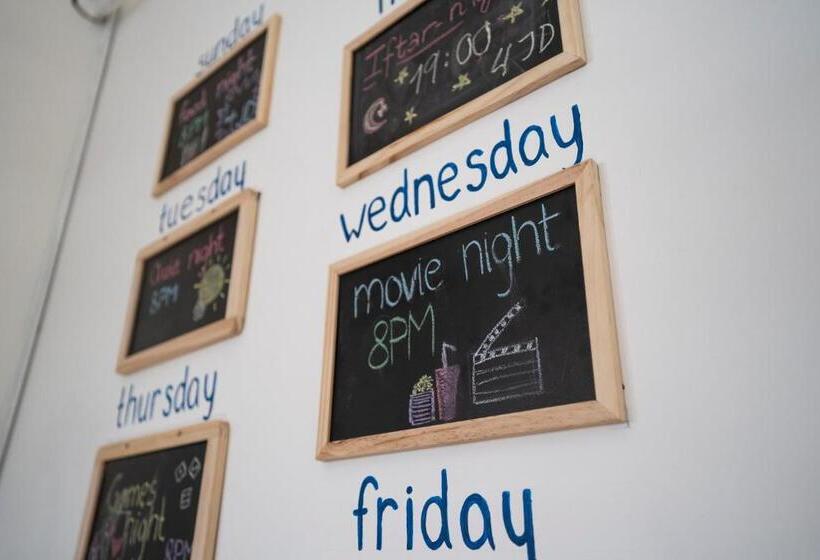 sunday
Food night
8PM
Iftar
19:00
4JD
tuesday
night
8PM
wednesday
movie night
8PM
thursday
Games
night
8PM
friday